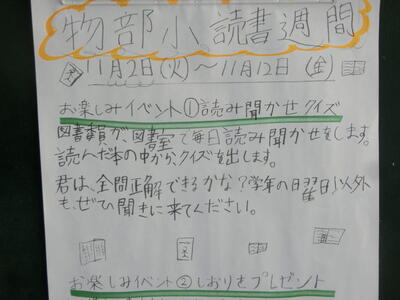 物部小読書週間
11月2日(火)～11月12日(金)
お楽しみイベント①読み聞かせクイズ
図書委員が図書室で毎日読み聞かせをします。
読んだ本の中から、クイズを出します。
君は、全問正解できるかな？学年の曜日以外
も、ぜひ聞きに来てください。
お楽しみイベント②しおりをプレゼント